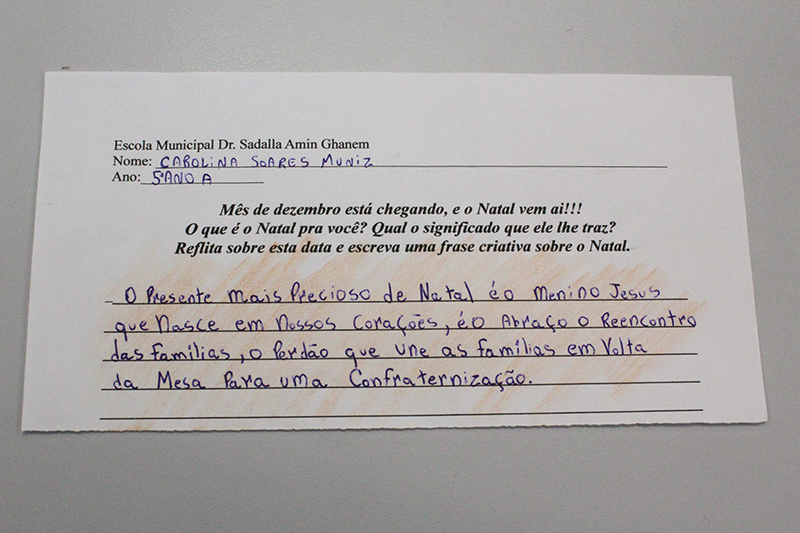 Escola Municipal Dr. Sadalla Amin Ghanem
Nome: CAROLINA SOARES MUNIZ
Ano: 5ºANO A
Mês de dezembro está chegando, e o Natal vem ai!!!
O que é o Natal pra você? Qual o significado que ele lhe traz?
Reflita sobre esta data e escreva uma frase criativa sobre o Natal.
O Presente mais Precioso de Natal é o Menino Jesus
que Nasce em Nossos Corações, é o Abraço o Reencontro
das famílias, o Perdão que une as famílias em Volta
da Mesa Para uma Confraternização.